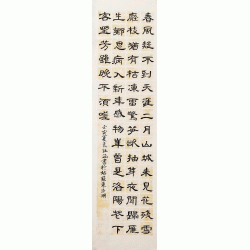 春風疑不到天涯二月山城未見花殘雪
壓枝猶有桔凍雷驚筍欲抽芽夜聞歸雁
生鄉思病入新年感物華曾是洛陽花下
客野芳雖晚不須嗟